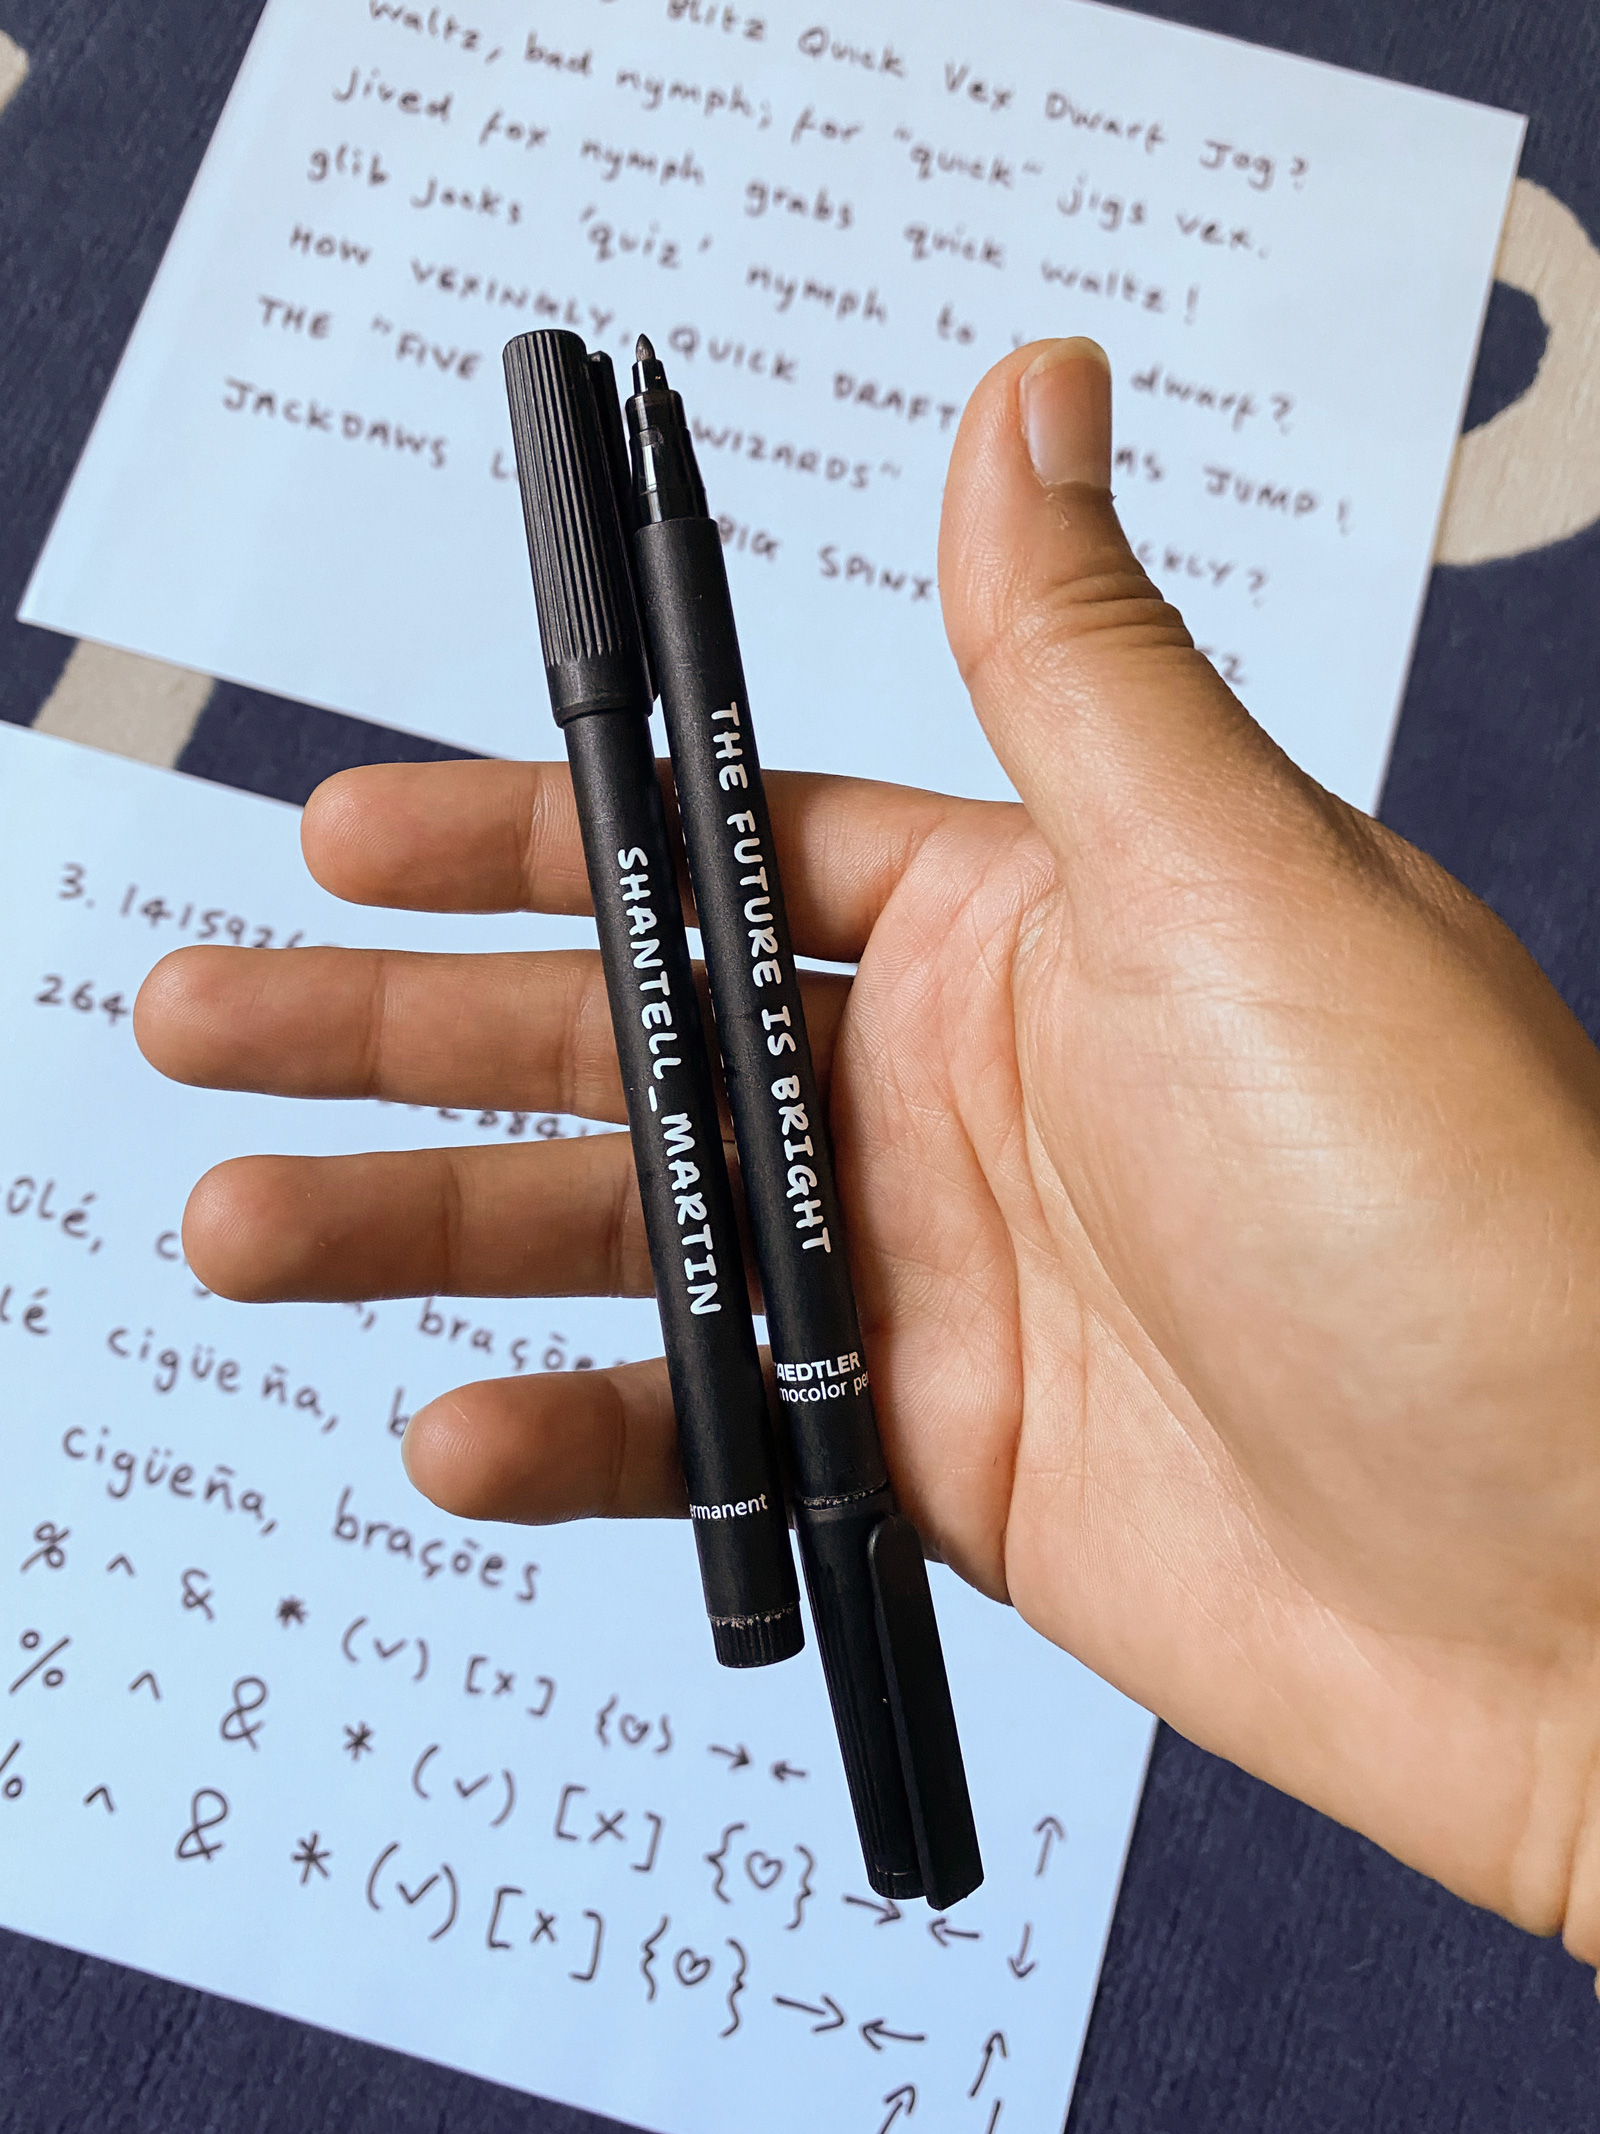 Blitz Quick Vex Dwarf Jog?
waltz, bad nymph; for "quick" jigs vex.
Jived fox nymph grabs quick waltz!
glib jocks 'quiz' nymph to dwarf?
HOW VEXINGLY, QUICK DRAFT JUMP!
THE "FIVE WIZARDS"
JACKDAWS BIG SPINX
SHANTELL_MARTIN
permanent
THE FUTURE IS BRIGHT
STAEDTLER
3.141592
264
olé,
brações
cigüeña,
cigüeña, brações
% ^ & * (✓) [x] {♡} → ←
% ^ & * (✓) [x] {♡} → ← ↑ ↓
% ^ & * (✓) [x] {♡} → ← ↑
↑